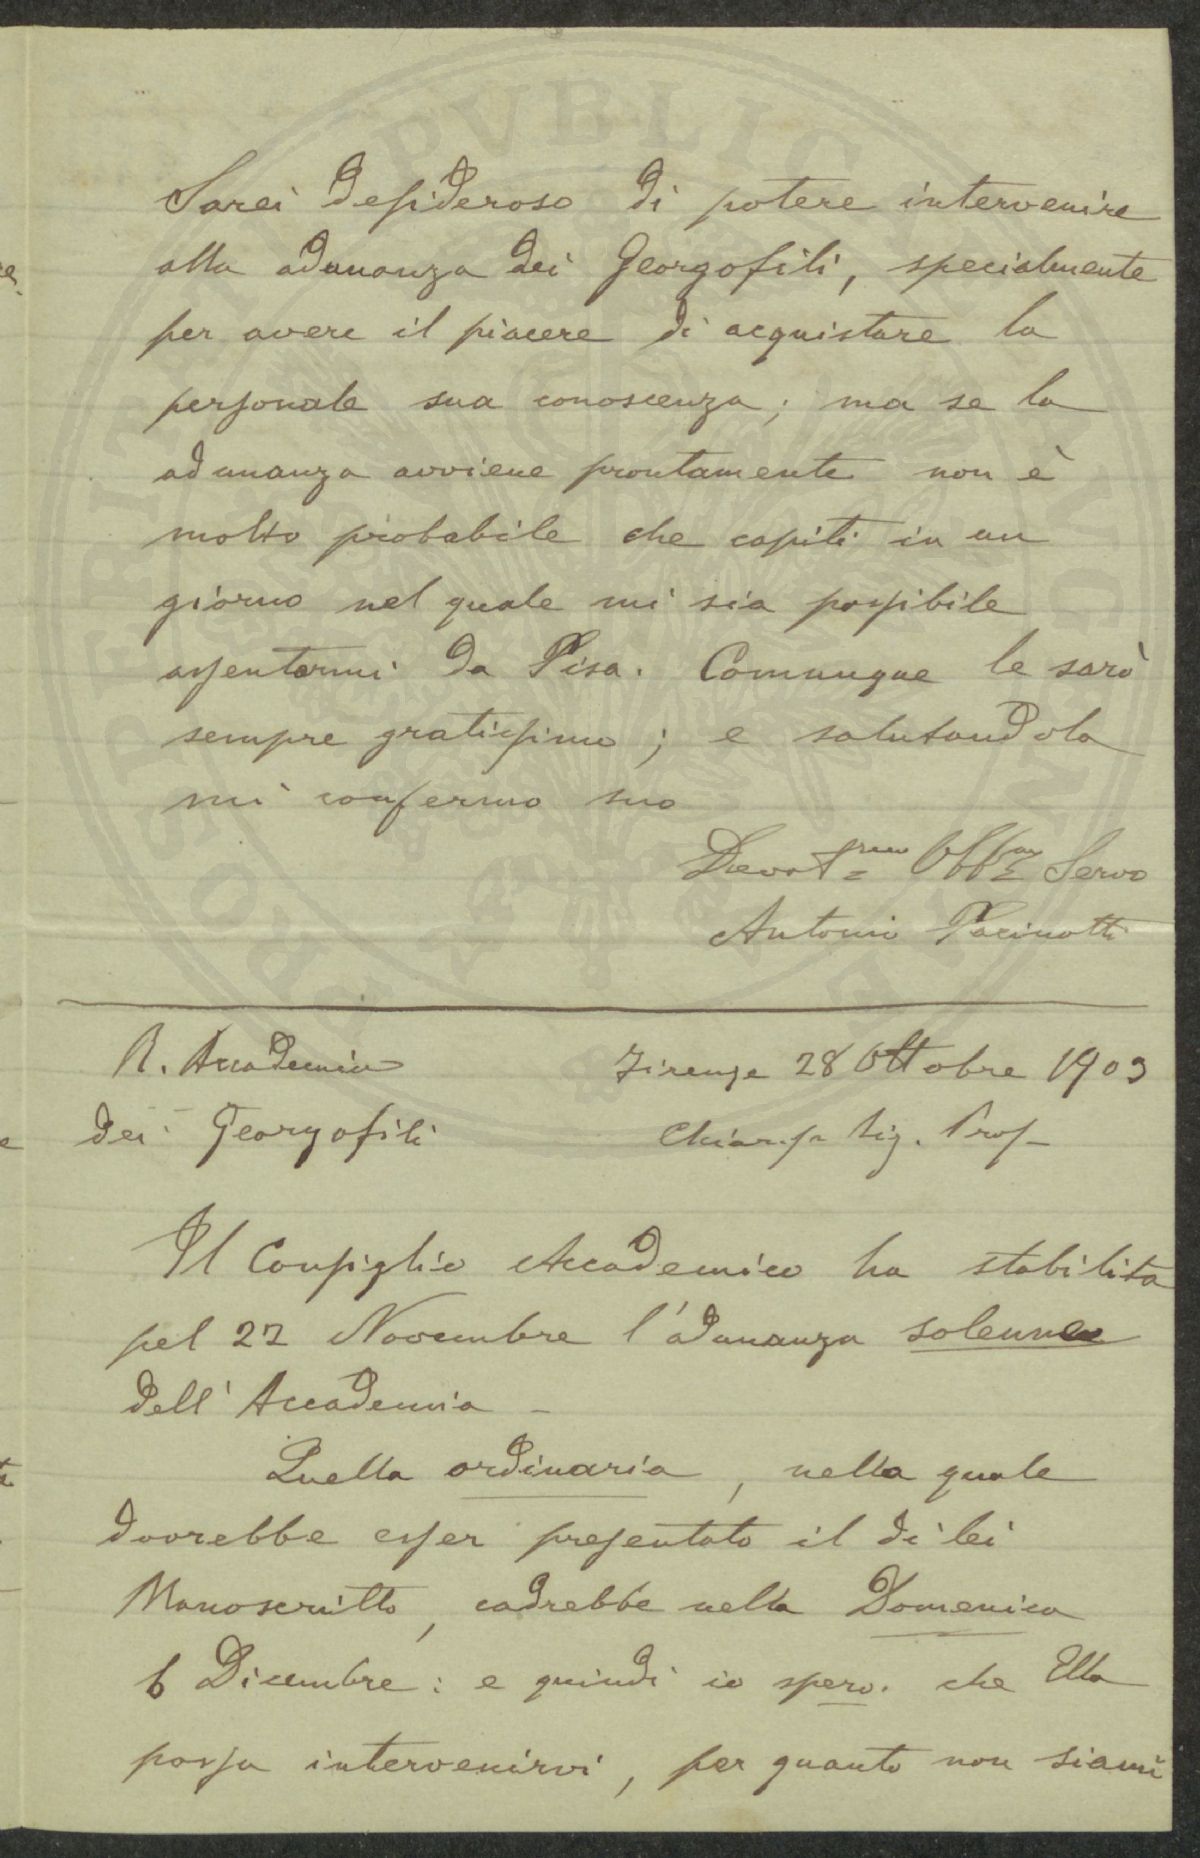 Sarei desideroso di potere intervenire
alla adunanza dei Georgofili, specialmente
per avere il piacere di acquistare la
personale sua conoscenza; ma se la
adunanza avviene prontamente non è
molto probabile che capiti in un
giorno nel quale mi sia possibile
assentarmi da Pisa. Comunque le sarò
sempre gratissimo; e salutandola
mi confermo suo
Devotmo Obbmo Servo
Antonio Pacinotti
R. Accademia
dei Georgofili
Firenze 28 Ottobre 1903
Sig. Prof
Il Consiglio Accademico ha stabilita
pel 22 Novembre l'adunanza solenne
dell'Accademia -
Quella ordinaria, nella quale
dovrebbe esser presentato il di lei
Manoscritto, cadrebbe nella Domenica
6 Dicembre: e quindi io spero. che Ella
possa intervenirvi, per quanto non siami